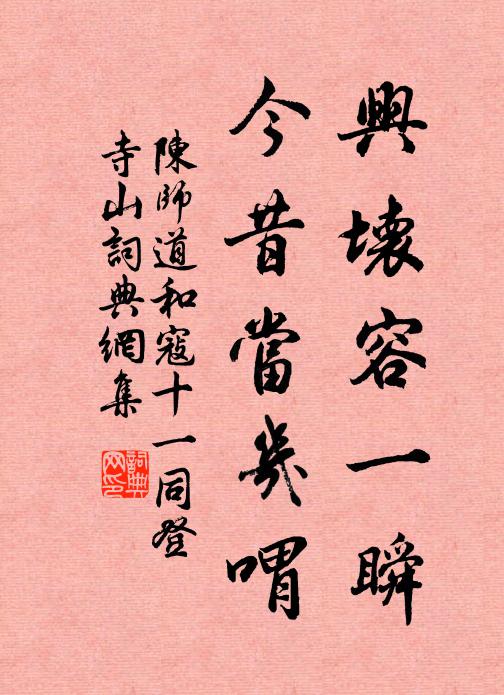 興壞容一瞬
今昔當幾喟
陳師道和寇十一同登
寺山詞典網集
詞典網印